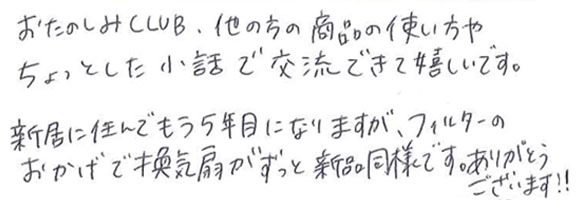 おたのしみCLUB、他の方の商品の使い方や
ちょっとした小話で交流できて嬉しいです。
新居に住んでもう5年目になりますが、フィルターの
おかげで換気扇がずっと新品同様です。ありがとう
ございます!!